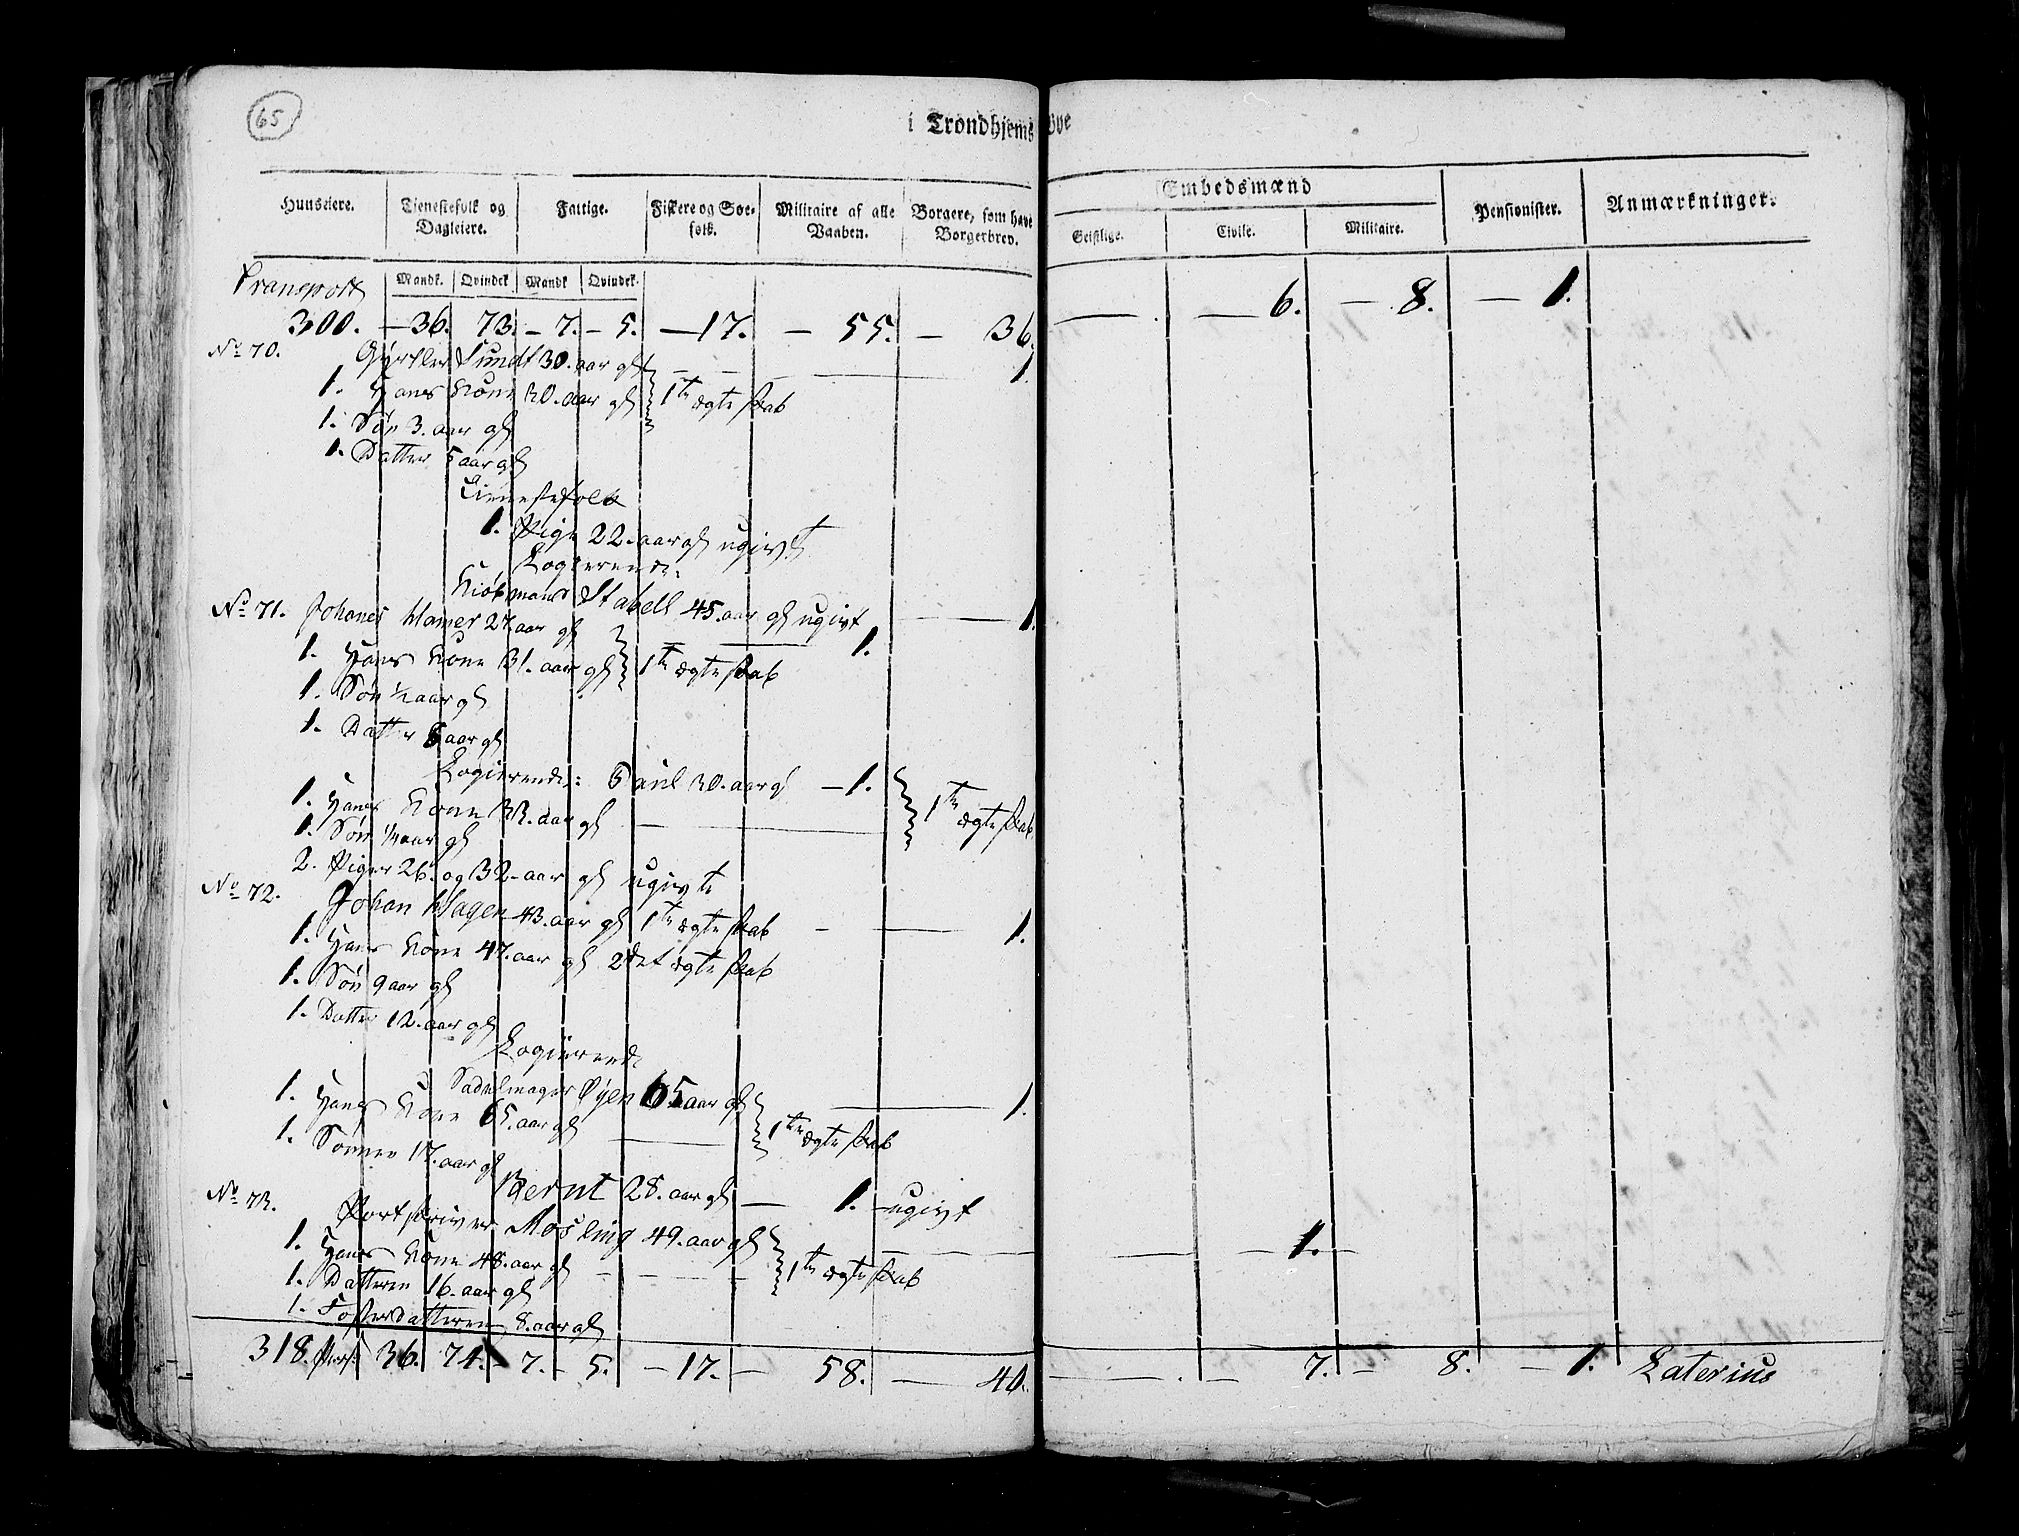 65
i Trondhjems Bye
Huuseiere. Tienestefolk og Dagleiere. Fattige. Fiskere og Søefolk. Militaire af alle Vaaben. Borgere, som have Borgerbrev. Embedsmænd Pensionister. Anmærkninger.
Geistlige. Civile. Militaire.
Mandk. Qvindek Mandk Qvindek.
Transport
300. — 36. 73. — 7. — 5. — 17. — 55. — 36. — . — 6. — 8. — 1.
No 70. Gjørtler Lundt 30. aar gl — — — 1.
1. Hans Kone 30. aar gl 1te ægteskab
1. Søn 3. aar gl
1. Datter 5 aar gl
Tienestefolk
1. Pige 22. aar gl ugivt
Logierende:
Kiøbmand Stabell 45. aar gl ugivt — 1.
No 71. Johanes Hamer 27. aar gl — 1.
1. Hans Kone 31. aar gl 1te ægteskab
1. Søn ½ aar gl
1. Datter 8 aar gl
Logierende: Paul 30. aar gl — 1.
1. Hans Kone 33. aar gl — 1te ægteskab
1. Søn ¼ aar gl
2. Piger 26. og 32. aar gl ugivte
No 72. Johan Hagen 43. aar gl 1te ægteskab — — 1.
1. Hans Kone 47. aar gl 2det ægteskab
1. Søn 9 aar gl
1. Datter 12. aar gl
Logierende
Sadelmager Øyen 65 aar gl — 1.
1. Hans Kone 65. aar gl — 1te ægteskab
1. Sønnen 17. aar gl
Bernt 28. aar gl — 1. ugivt
No 73. Portskriver Mosling 49. aar gl — 1. —
1. Hans Kone 48. aar gl — — — 1te ægteskab
1. Datteren 16. aar gl
1. Fosterdatteren 8. aar gl
318. Pers: 36. 74. — 7. — 5. — 17. — 58. — 40. — . — 7. — 8. — 1. Laterius